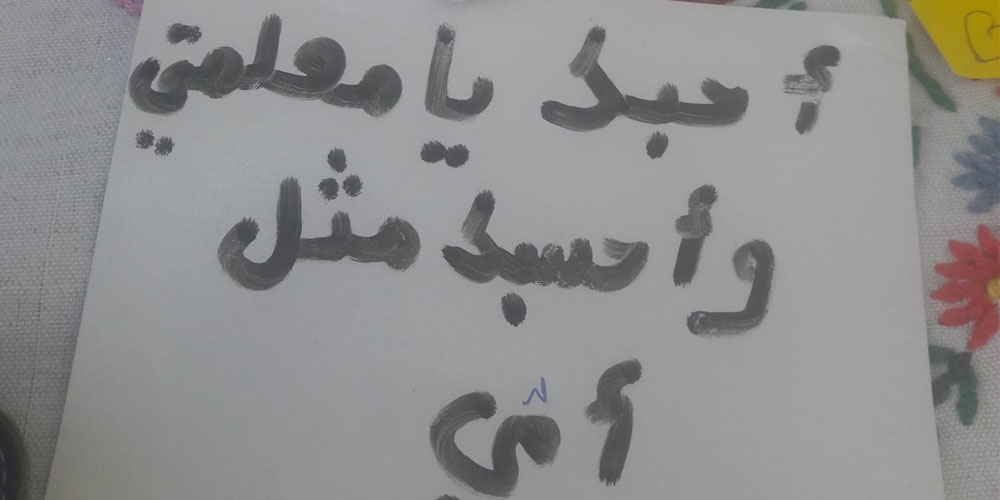 أحبك يا معلمتي
وأحسبك مثل
أمّي